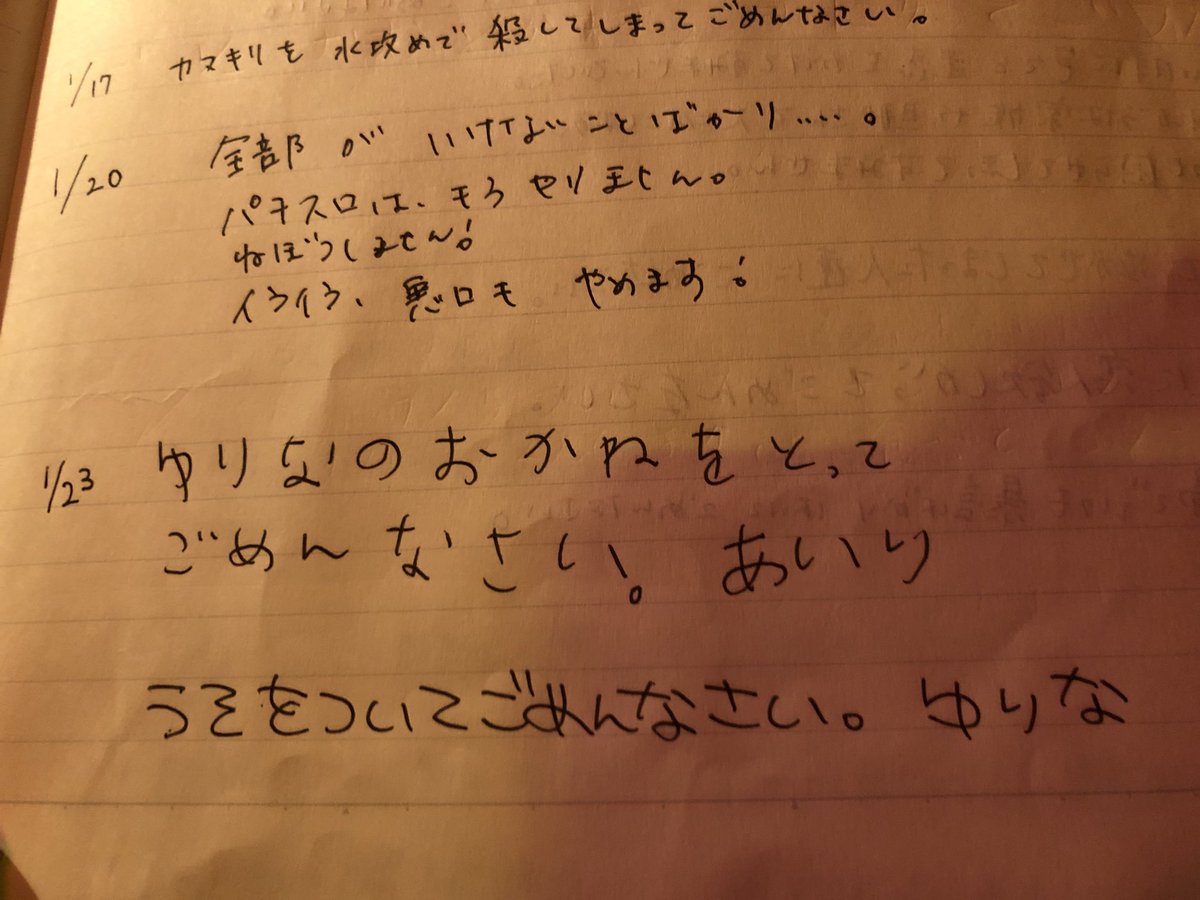 1/17 カマキリを 水攻めで 殺してしまってごめんなさい。
1/20 全部が いけないことばかり‥‥。
パチスロは、もうやりません。
ねぼうしません!
イライラ、悪口も やめます!
1/23 ゆりなのおかねをとって
ごめんなさい。 あいり
うそをついてごめんなさい。 ゆりな